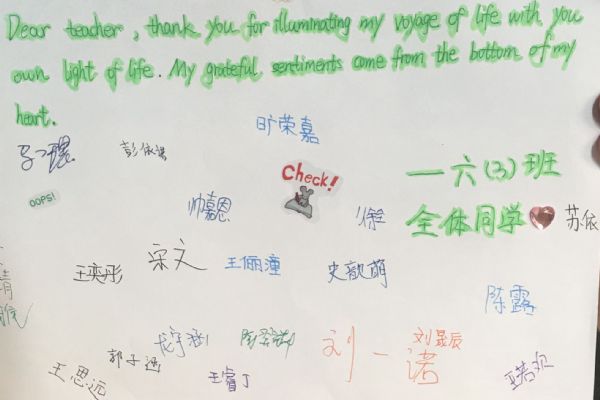 Dear teacher, thank you for illuminating my voyage of life with you
own light of life. My grateful sentiments come from the bottom of my
heart.
旷荣嘉
彭依琪
Check!
一六(3)班
OOPS!
帅嘉恩
全体同学
苏依
王奕彤
宋文
王俪潼
史歆萌
陈露
刘一诺
刘晨辰
郭子涵
王思远
王睿丁